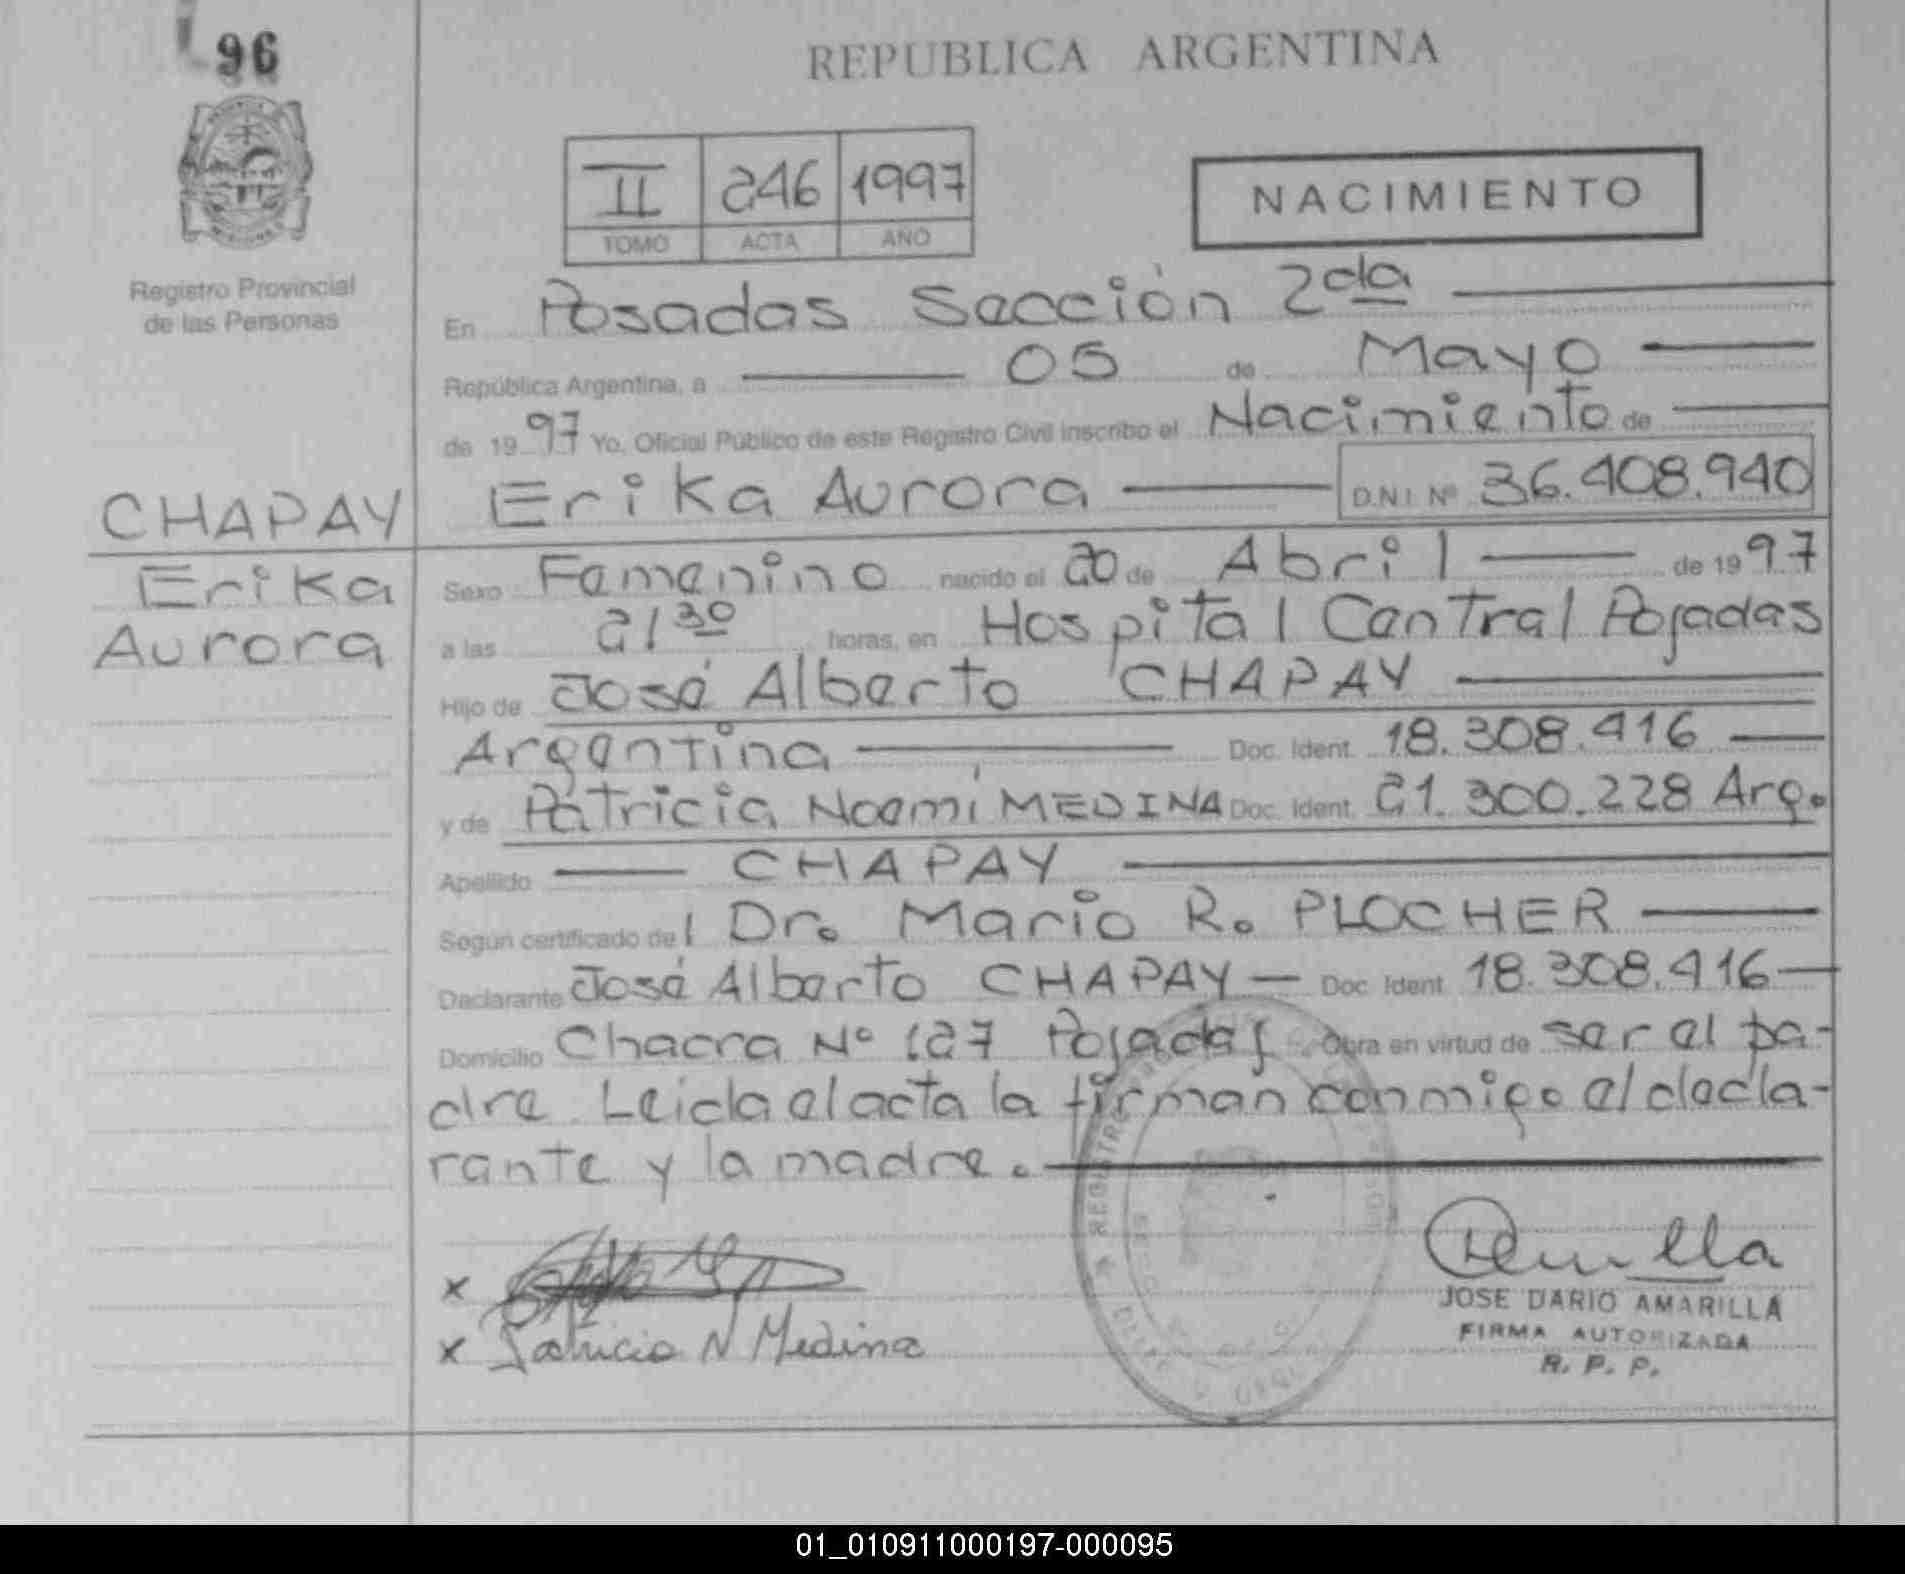 96
REPUBLICA ARGENTINA
II 246 1997
TOMO ACTA AÑO
NACIMIENTO
Registro Provincial
de las Personas
En Posadas Sección 2da
República Argentina, a 05 de Mayo
de 1997 Yo, Oficial Público de este Registro Civil inscribo el Nacimiento de
CHAPAY
Erika Aurora D.N.I. Nº 36.408.940
Erika
Aurora
Sexo Femenino nacido el 20 de Abril de 1997
a las 21 30 horas, en Hospital Central Posadas
Hijo de José Alberto CHAPAY
Argentina Doc. Ident. 18.308.416
y de Patricia Noemí MEDINA Doc. Ident. 21.300.228 Arg.
Apellido CHAPAY
Según certificado del Dr. Mario R. PLOCHER
Declarante José Alberto CHAPAY Doc. Ident. 18.308.416
Domicilio Chacra Nº 127 Posadas Obra en virtud de ser el pa-
dre. Leida el acta la firman conmigo el decla-
rante y la madre.
x
x Patricia N Medina
JOSE DARIO AMARILLA
FIRMA AUTORIZADA
R. P. P.
01_010911000197-000095